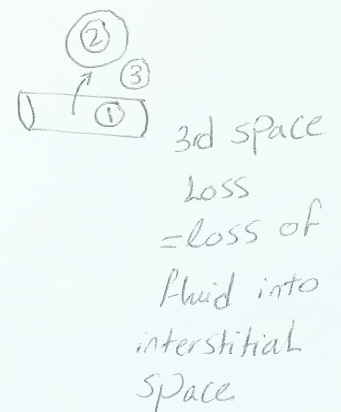 ②
③
①
3rd space
Loss
=loss of
fluid into
interstitial
space